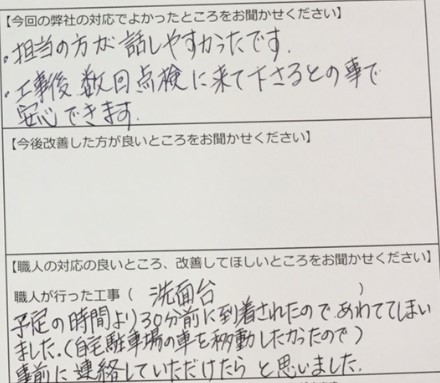 【今回の弊社の対応でよかったところをお聞かせください】
・担当の方が話しやすかったです.
・工事後数回点検に来て下さるとの事で
安心できます.
【今後改善した方が良いところをお聞かせください】
【職人の対応の良いところ、改善してほしいところをお聞かせください】
職人が行った工事（ 洗面台 ）
予定の時間より30分前に到着されたのであわててしまい
ました.（自宅駐車場の車を移動したかったので）
事前に連絡していただけたらと思いました.